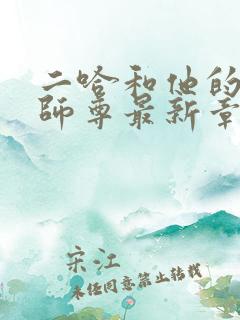 二哈和他的
師尊最新章
宋江
未经同意禁止转载